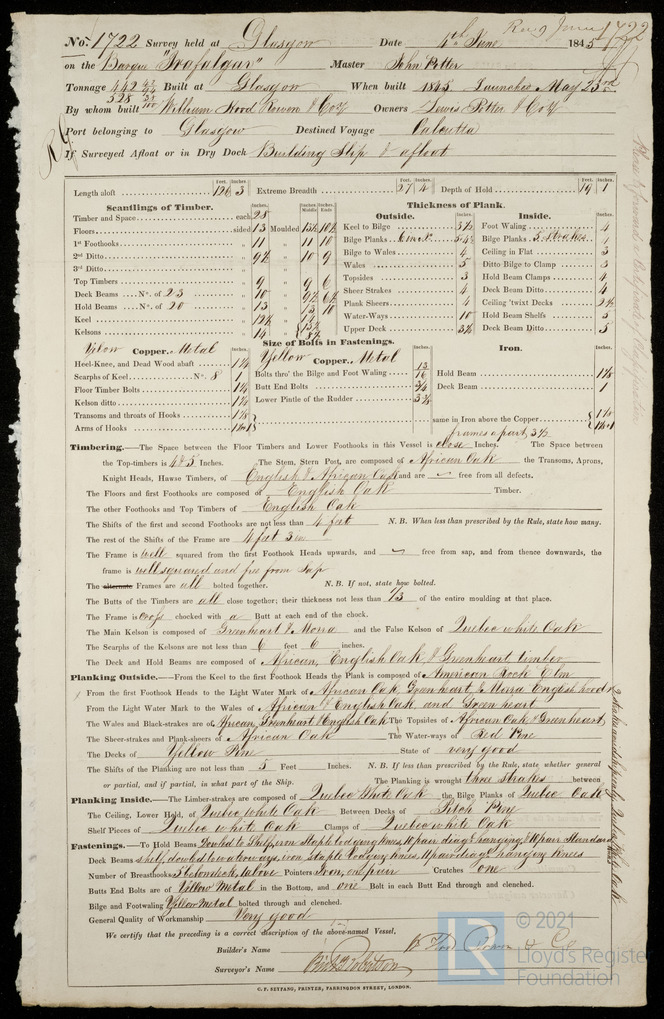 No. 1722 Survey held at Glasgow Date 4th June 1845
on the Barque "Trafalgar" Master John Potter
Tonnage 442 Built at Glasgow When built 1845 Launched May 23rd
528
By whom built William Hood Rowan & Coy Owners Lewis Potter & Coy
Port belonging to Glasgow Destined Voyage Calcutta
If Surveyed Afloat or in Dry Dock Building Slip & afloat
Feet. Inches. Feet. Inches. Feet. Inches.
Length aloft 126 3 Extreme Breadth 27 4 Depth of Hold 19 1
Scantlings of Timber.
Timber and Space each 28
Floors sided 13 Moulded
1st Foothooks 11 11 10
2nd Ditto 9½ 10 9
3rd Ditto
Top Timbers 9 9 6
Deck Beams No. of 23 10
Hold Beams No. of 20 13 13 10
Keel
Kelsons 14
Thickness of Plank.
Outside.
Keel to Bilge 3½
Bilge Planks
Bilge to Wales 4
Wales 5
Topsides 3
Sheer Strakes 4
Plank Sheers 4
Water-Ways 10
Upper Deck 3½
Inside.
Foot Waling 4
Bilge Planks 5 Strakes
Ceiling in Flat 3
Ditto Bilge to Clamp 3
Hold Beam Clamps 4
Deck Beam Ditto 4
Ceiling 'twixt Decks 2½
Hold Beam Shelfs 5
Deck Beam Ditto 5
Size of Bolts in Fastenings.
Yellow Copper. Metal
Heel-Knee, and Dead Wood abaft 1¼
Scarphs of Keel No. 8 1
Floor Timber Bolts 1¼
Kelson ditto 1¼
Transoms and throats of Hooks 1⅛
Arms of Hooks
Yellow Copper. Metal
Bolts thro' the Bilge and Foot Waling
Butt End Bolts ¾
Lower Pintle of the Rudder
Iron.
Hold Beam 1⅛
Deck Beam 1
same in Iron above the Copper
frames apart, 3½
Timbering.—The Space between the Floor Timbers and Lower Foothooks in this Vessel is close Inches. The Space between
the Top-timbers is 4 & 5 Inches. The Stem, Stern Post, are composed of African Oak the Transoms, Aprons,
Knight Heads, Hawse Timbers, of English & African Oak and are free from all defects.
The Floors and first Foothooks are composed of English Oak Timber.
The other Foothooks and Top Timbers of English Oak
The Shifts of the first and second Foothooks are not less than 4 feet N.B. When less than prescribed by the Rule, state how many.
The rest of the Shifts of the Frame are 4 feet 3 in
The Frame is well squared from the first Foothook Heads upwards, and free from sap, and from thence downwards, the
frame is well squared and free from Sap
The alternate Frames are all bolted together. N.B. If not, state how bolted.
The Butts of the Timbers are all close together; their thickness not less than ⅓ of the entire moulding at that place.
The Frame is cross chocked with a Butt at each end of the chock.
The Main Kelson is composed of Greenheart & Morra and the False Kelson of Quebec white Oak
The Scarphs of the Kelsons are not less than 6 feet 6 inches.
The Deck and Hold Beams are composed of African, English Oak & Greenheart timber
Planking Outside.—From the Keel to the first Foothook Heads the Plank is composed of American Rock Elm
From the first Foothook Heads to the Light Water Mark of African Oak, Greenheart, & Morra
From the Light Water Mark to the Wales of African & English Oak and Greenheart
The Wales and Black-strakes are of African, Greenheart & English Oak The Topsides of African Oak & Greenheart
The Sheer-strakes and Plank-sheers of African Oak The Water-ways of Red Pine
The Decks of Yellow Pine State of very good
The Shifts of the Planking are not less than 5 Feet Inches. N.B. If less than prescribed by the Rule, state whether general
or partial, and if partial, in what part of the Ship. The Planking is wrought three strakes between
Planking Inside.—The Limber-strakes are composed of Quebec White Oak the Bilge Planks of Quebec Oak
The Ceiling, Lower Hold, of Quebec White Oak Between Decks of Pitch Pine
Shelf Pieces of Quebec white Oak Clamps of Quebec white Oak
Fastenings.—To Hold Beams Dowled to Shelf, iron Staple lodging knees,
Deck Beams shelf, dowled to waterways, iron staple lodging knees hanging knees
Number of Breasthooks Pointers Iron, one pair Crutches one
Butts End Bolts are of Yellow Metal in the Bottom, and one Bolt in each Butt End through and clenched.
Bilge and Footwaling Yellow Metal bolted through and clenched.
General Quality of Workmanship Very good
We certify that the preceding is a correct description of the above-named Vessel,
Builder's Name
Surveyor's Name
C. F. SEYFANG, PRINTER, FARRINGDON STREET, LONDON.
© 2021
Lloyd's Register
Foundation
LR